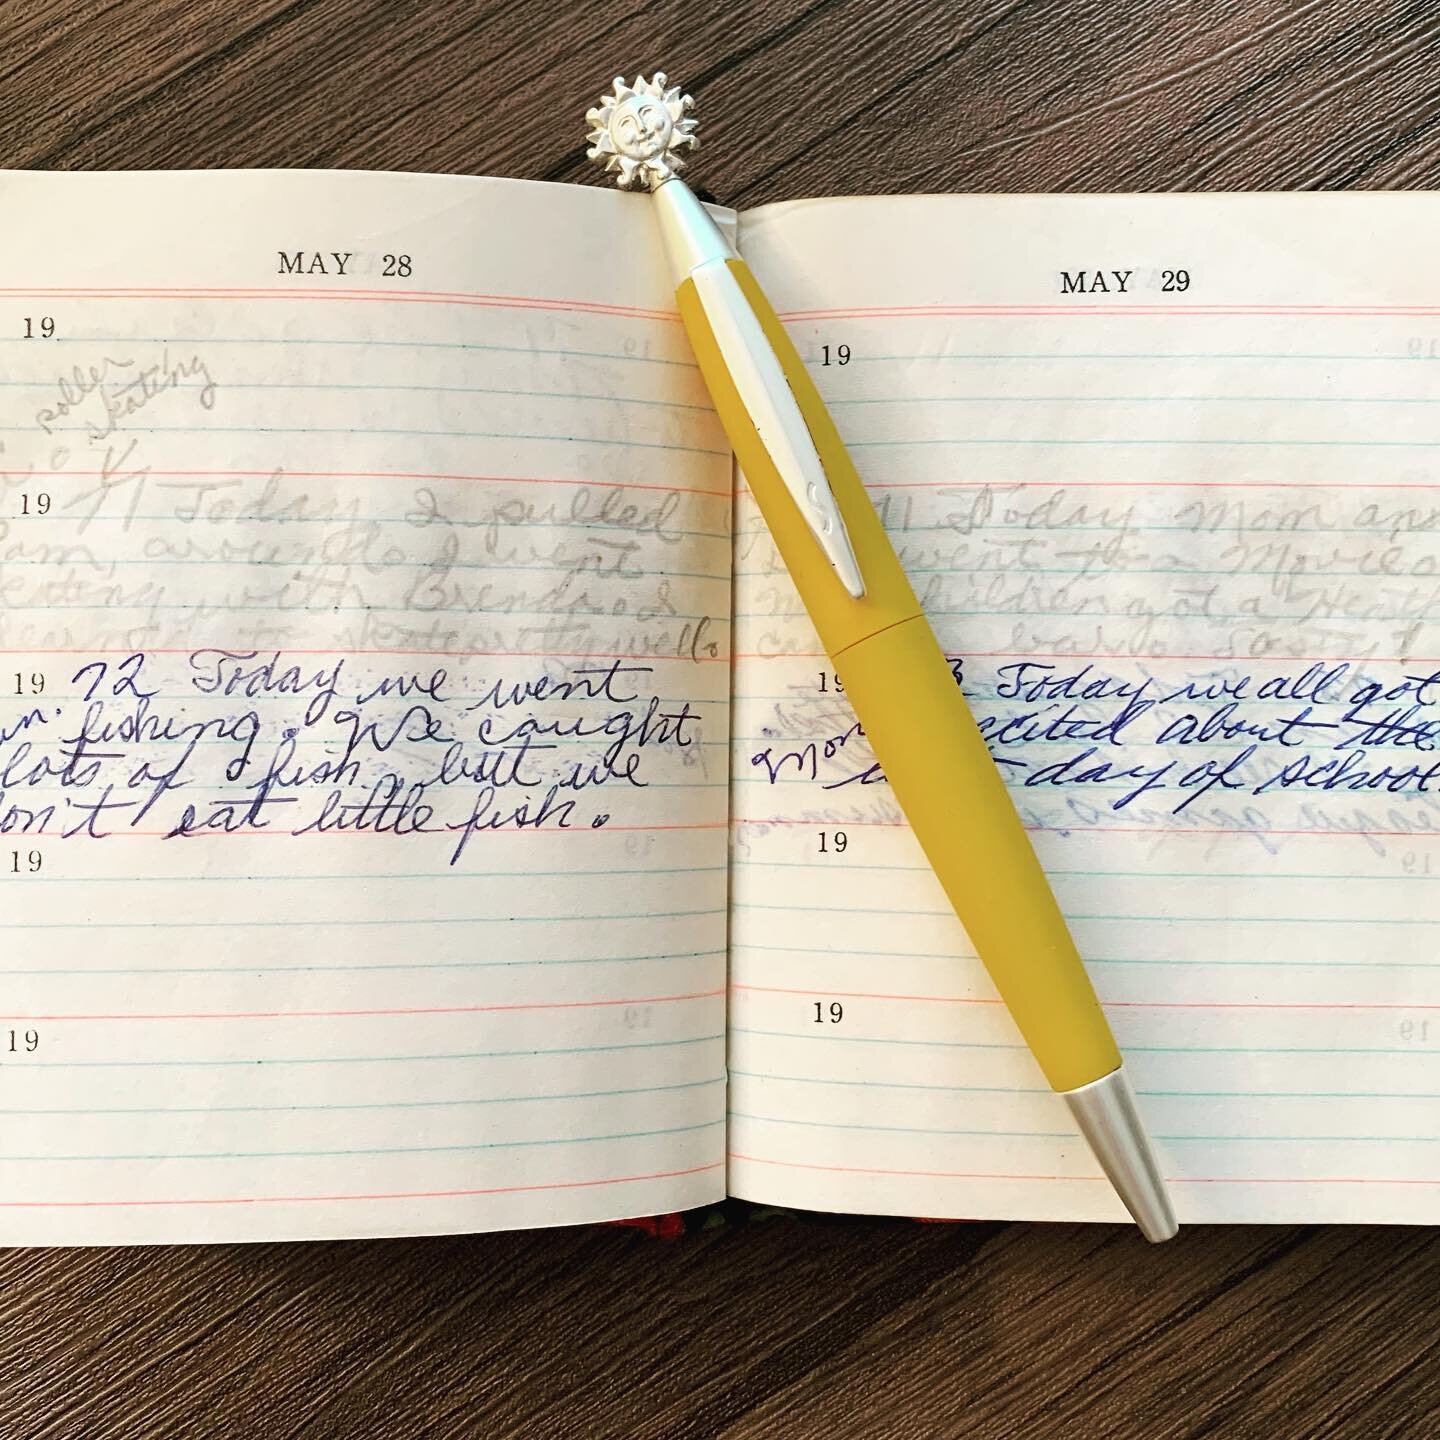 MAY 28
19
roller
skating
19 71 Today I pulled
around. I went
with Brenda. I
to skate pretty well.
19 72 Today we went
fishing. We caught
lots of fish, but we
on't eat little fish.
19
19
MAY 29
19
19 71 Today Mom and
went to a Movie
children got a Heath
bar. So So!
19 3 Today we all got
Mon. xcited about the
day of school.
19
19